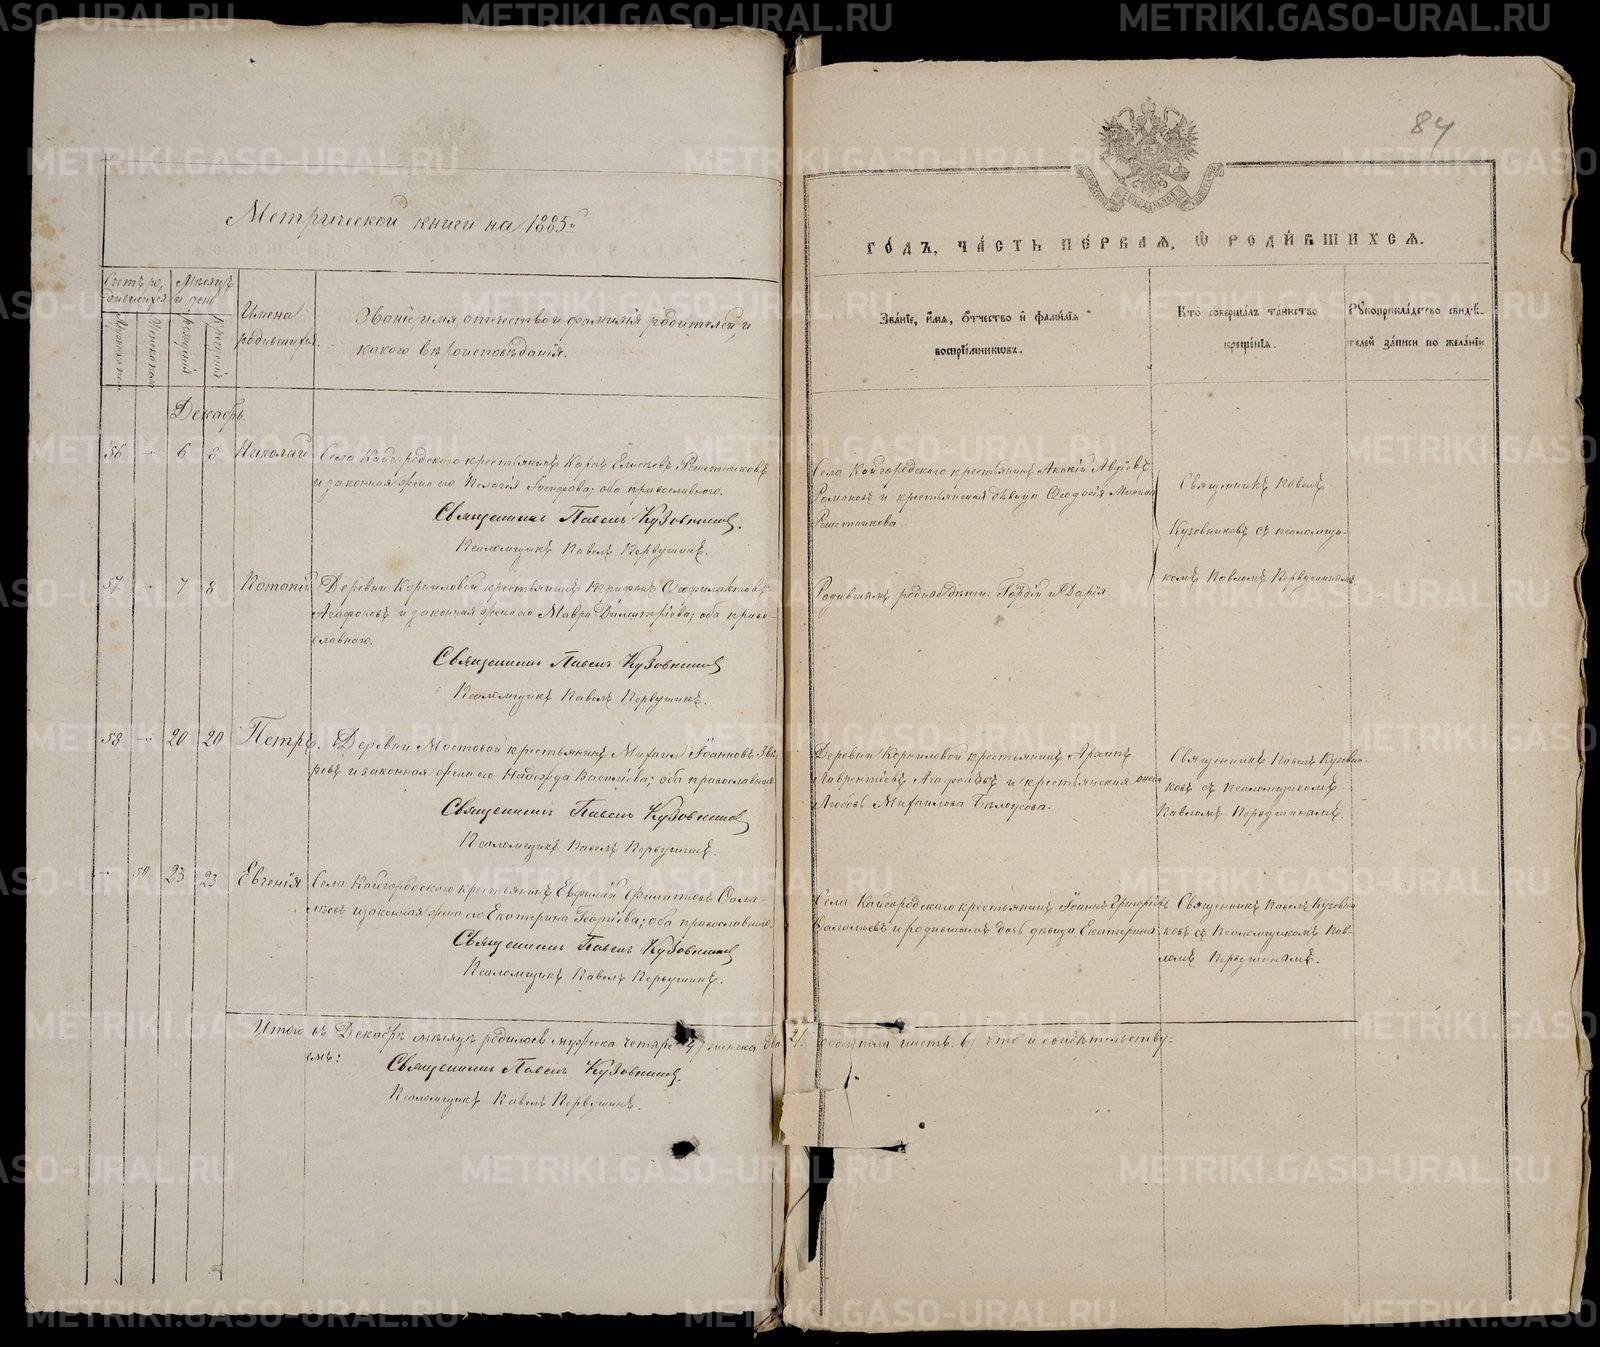 84
Метрической книги на 1885й
ГОДЪ, ЧАСТЬ ПЕРВАЯ, Ѡ РОДИВШИХСЯ.
Счетъ ро-
дившихся
Мѣсяцъ
и день
Мужеска пола
Женска пола
рожденія
крещенія
Имена
родившихся.
Званіе, имя, отечество и фамилія родителей, и
какого вѣроисповѣданія.
Званіе, имя, отчество и фамилія
воспріемниковъ.
Кто совершалъ таинство
крещенія.
Рукоприкладство свидѣ-
телей записи по желанію
Декабрь.
56 - 6 8 Николай
Села Кайгородского крестьянинъ Карпъ Елисѣевъ Решетниковъ
и законная жена его Пелагія Іосифова; оба православного.
Священникъ Павелъ Кузовниковъ.
Псаломщикъ Павелъ Первушинъ.
Села Кайгородского крестьянинъ Акакій Авдіевъ
Романовъ и крестьянская дѣвица Ѳеодосія
Решетникова.
Священникъ Павелъ
Кузовниковъ съ псаломщи-
комъ Павломъ Первушинымъ
57 - 7 8 Потапій
Деревни Корниловой крестьянинъ Ѳеофилактовъ
Агафоновъ и законная жена его Мавра Димитріева; оба право-
славнаго.
Священникъ Павелъ Кузовниковъ
Псаломщикъ Павелъ Первушинъ.
Родившимъ родная дѣти: Гордій и Дарія.
58 - 20 20 Петръ.
Деревни Мостовой крестьянинъ Михаилъ Іоанновъ Звѣ-
ревъ и законная жена его Надежда Василіева; оба православнаго
Священникъ Павелъ Кузовниковъ
Псаломщикъ Павелъ Первушинъ.
Деревни Корниловой крестьянинъ Архипъ
Лаврентіевъ и крестьянская жена
Любовь Михаилова Бѣлоусова.
Священникъ Павелъ Кузовни-
ковъ съ Псаломщикомъ
Павломъ Первушинымъ.
- 50 23 23 Евгенія
Села Кайгородского крестьянинъ Евфимій Филипповъ
и законная жена его Екатерина Георгіева; оба православнаго.
Священникъ Павелъ Кузовниковъ
Псаломщикъ Павелъ Первушинъ.
Села Кайгородского крестьянинъ Іоаннъ Григорьевъ
и родившимъ дочь дѣвица Екатерина
Священникъ Павелъ Кузовни
ковъ съ Псаломщикомъ Пав-
ломъ Первушинымъ.
Итого въ Декабрѣ мѣсяцѣ родилось мужеска четыре 4/ женска два 2/. обоего пола шесть 6/ что и свидѣтельству-
емъ:
Священникъ Павелъ Кузовниковъ.
Псаломщикъ Павелъ Первушинъ.
METRIKI.GASO-URAL.RU